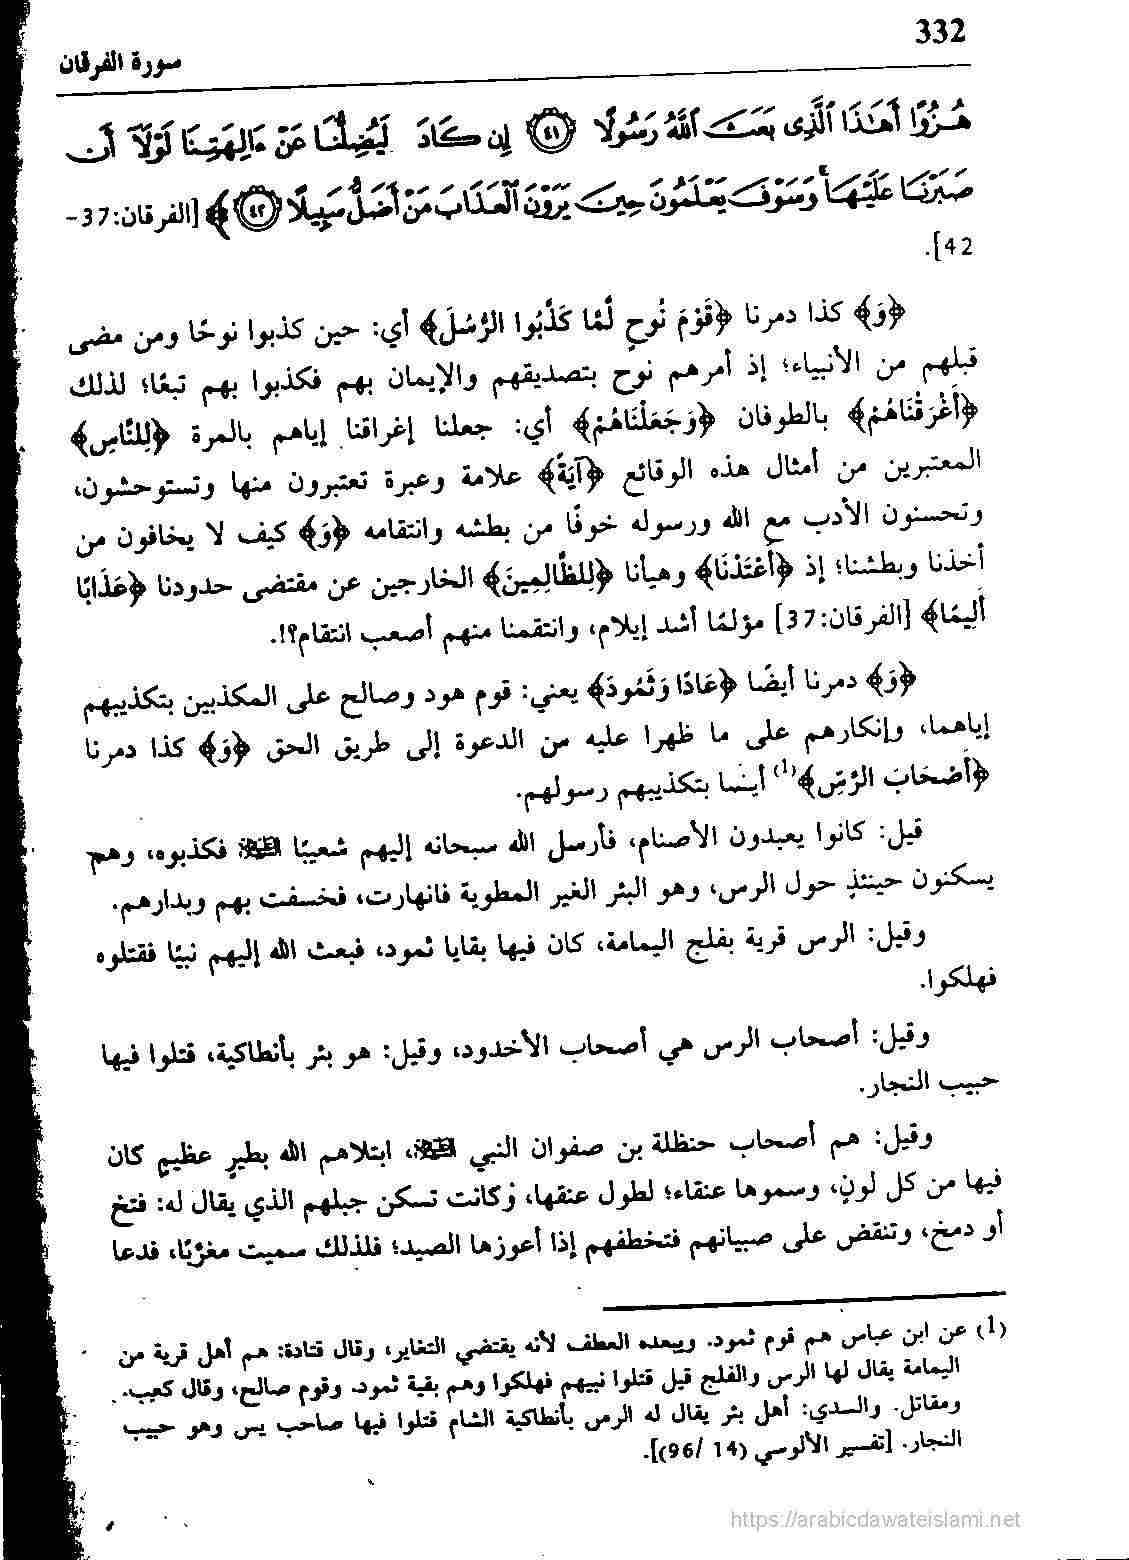 332
سورة الفرقان
هُزُوًا أَهَـٰذَا ٱلَّذِى بَعَثَ ٱللَّهُ رَسُولًا ﴿٤١﴾ إِن كَادَ لَيُضِلُّنَا عَنْ ءَالِهَتِنَا لَوْلَآ أَن
صَبَرْنَا عَلَيْهَا ۚ وَسَوْفَ يَعْلَمُونَ حِينَ يَرَوْنَ ٱلْعَذَابَ مَنْ أَضَلُّ سَبِيلًا ﴿٤٢﴾ ﴾ [الفرقان:37-
42].
﴿وَ﴾ كذا دمرنا ﴿قَوْمَ نُوحٍ لَّمَّا كَذَّبُوا الرُّسُلَ﴾ أي: حين كذبوا نوحًا ومن مضى
قبلهم من الأنبياء؛ إذ أمرهم نوح بتصديقهم والإيمان بهم فكذبوا بهم تبعًا؛ لذلك
﴿أَغْرَقْنَاهُمْ﴾ بالطوفان ﴿وَجَعَلْنَاهُمْ﴾ أي: جعلنا إغراقنا إياهم بالمرة ﴿لِلنَّاسِ﴾
المعتبرين من أمثال هذه الوقائع ﴿آيَةً﴾ علامة وعبرة تعتبرون منها وتستوحشون،
وتحسنون الأدب مع الله ورسوله خوفًا من بطشه وانتقامه ﴿وَ﴾ كيف لا يخافون من
أخذنا وبطشنا؛ إذ ﴿أَعْتَدْنَا﴾ وهيأنا ﴿لِلظَّالِمِينَ﴾ الخارجين عن مقتضى حدودنا ﴿عَذَابًا
أَلِيمًا﴾ [الفرقان:37] مؤلمًا أشد إيلام، وانتقمنا منهم أصعب انتقام؟!.
﴿وَ﴾ دمرنا أيضًا ﴿عَادًا وَثَمُودَ﴾ يعني: قوم هود وصالح على المكذبين بتكذيبهم
إياهما، وإنكارهم على ما ظهرا عليه من الدعوة إلى طريق الحق ﴿وَ﴾ كذا دمرنا
﴿أَصْحَابَ الرَّسِّ﴾(1) أيضا بتكذيبهم رسولهم.
قيل: كانوا يعبدون الأصنام، فأرسل الله سبحانه إليهم شعيبًا فكذبوه، وهم
يسكنون حينئذٍ حول الرس، وهو البئر الغير المطوية فانهارت، فخسفت بهم وبدارهم.
وقيل: الرس قرية بفلج اليمامة، كان فيها بقايا ثمود، فبعث الله إليهم نبيًا فقتلوه
فهلكوا.
وقيل: أصحاب الرس هي أصحاب الأخدود، وقيل: هو بئر بأنطاكية، قتلوا فيها
حبيب النجار.
وقيل: هم أصحاب حنظلة بن صفوان النبي ، ابتلاهم الله بطيرٍ عظيمٍ كان
فيها من كل لونٍ، وسموها عنقاء؛ لطول عنقها، وكانت تسكن جبلهم الذي يقال له: فتخ
أو دمخ، وتنقض على صبيانهم فتخطفهم إذا أعوزها الصيد؛ فلذلك سميت مغربًا، فدعا
(1) عن ابن عباس هم قوم ثمود. ويبعده العطف لأنه يقتضي التغاير، وقال قتادة: هم أهل قرية من
اليمامة يقال لها الرس والفلج قيل قتلوا نبيهم فهلكوا وهم بقية ثمود. وقوم صالح، وقال كعب.
ومقاتل. والسدي: أهل بئر يقال له الرس بأنطاكية الشام قتلوا فيها صاحب يس وهو حبيب
النجار. [تفسير الألوسي (14 /96)].
https://arabicdawateislami.net